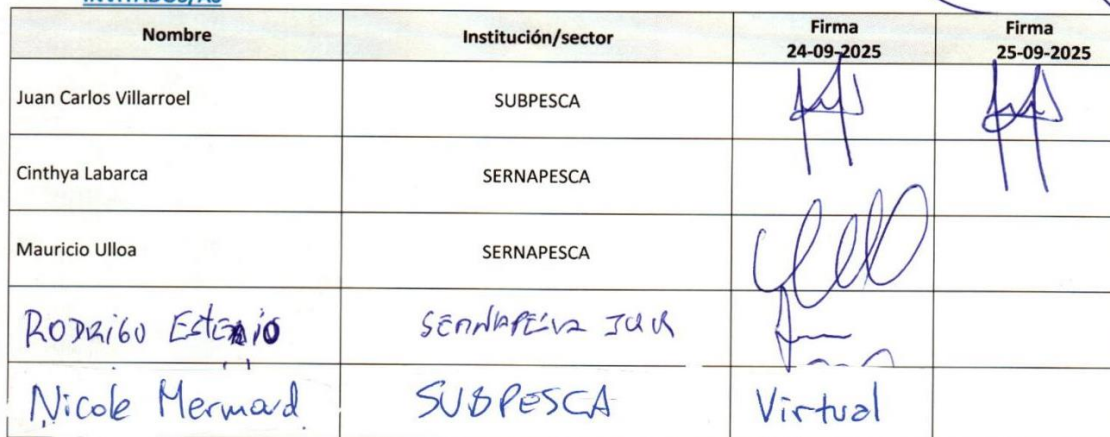 INVITADOS/AS
Nombre Institución/sector Firma 24-09-2025 Firma 25-09-2025
Juan Carlos Villarroel SUBPESCA
Cinthya Labarca SERNAPESCA
Mauricio Ulloa SERNAPESCA
RODRIGO
Nicole Mermoud SUBPESCA Virtual